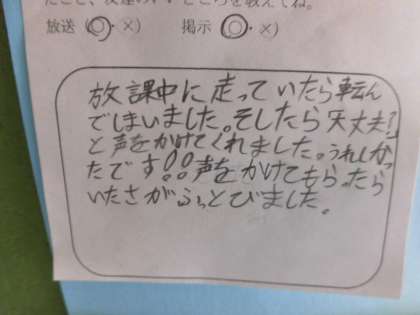 たこと、友達のいいところを教えてね。
放送(○・×) 掲示(○・×)
放課中に走っていたら転ん
でしまいました。そしたら大丈夫?
と声をかけてくれました。うれしかっ
たです!!声をかけてもらったら
いたさがふっとびました。